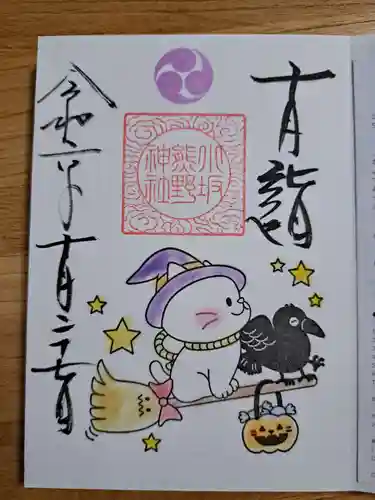 十月詣
小坂
熊野
神社
令和二年
十月二十七日